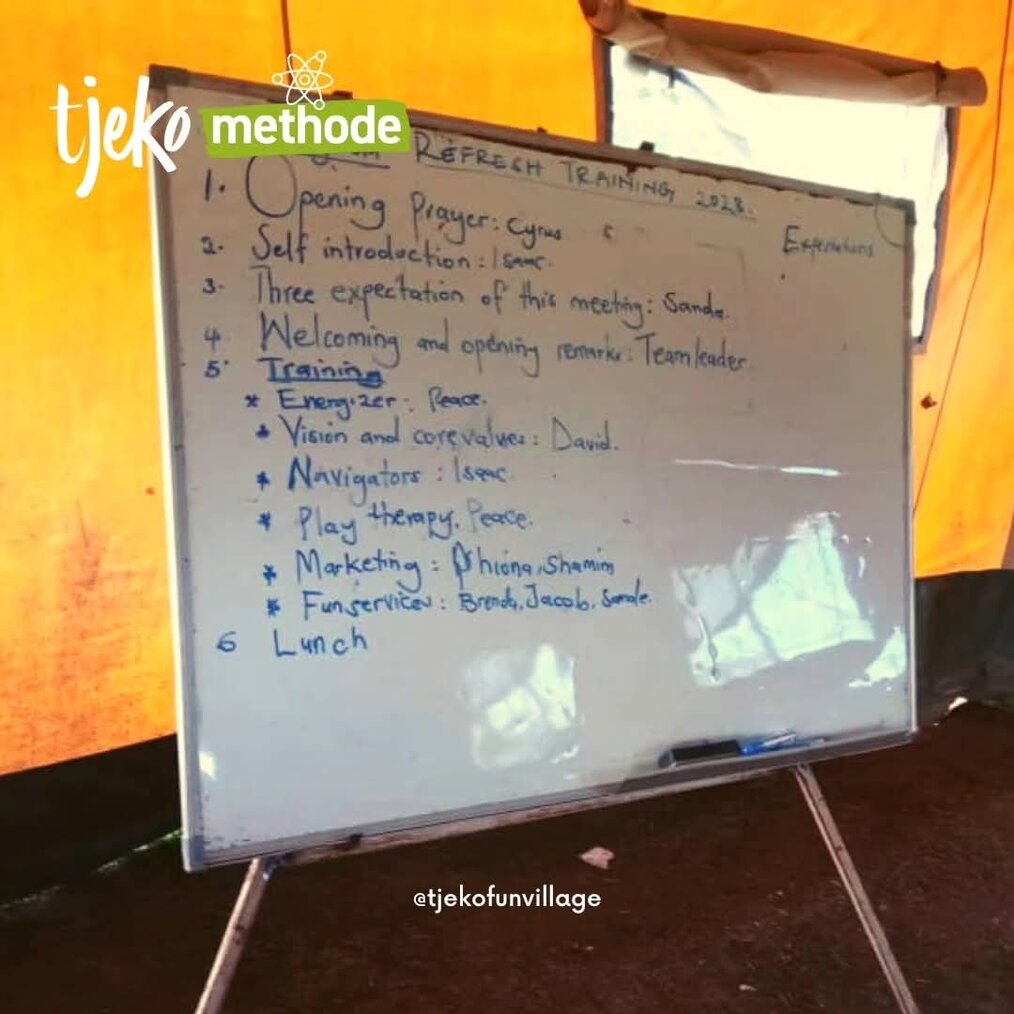 tjeko
methode
REFRESH TRAINING, 2023.
1. Opening Prayer: Cyrus
Expectations
2. Self introduction: Isaac.
3. Three expectation of this meeting: Sanda.
4. Welcoming and opening remarks: Teamleader.
5. Training
* Energizer: Peace.
* Vision and core values: David.
* Navigators: Isaac.
* Play therapy. Peace.
* Marketing: Phiona, Shamim
* Funservices: Brenda, Jacob,
6 Lunch
@tjekofunvillage